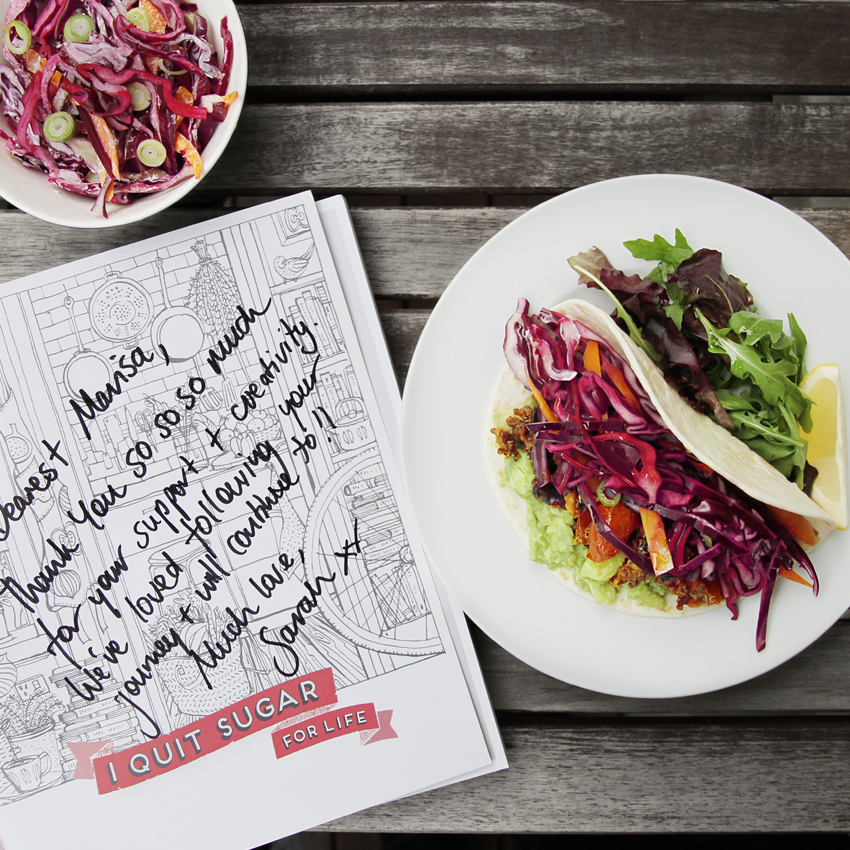 Dearest Marisa,
Thank you so so so much
for your support + creativity.
We've loved following your
journey + will continue to!!
Much love,
Sarah xx
I QUIT SUGAR
FOR LIFE